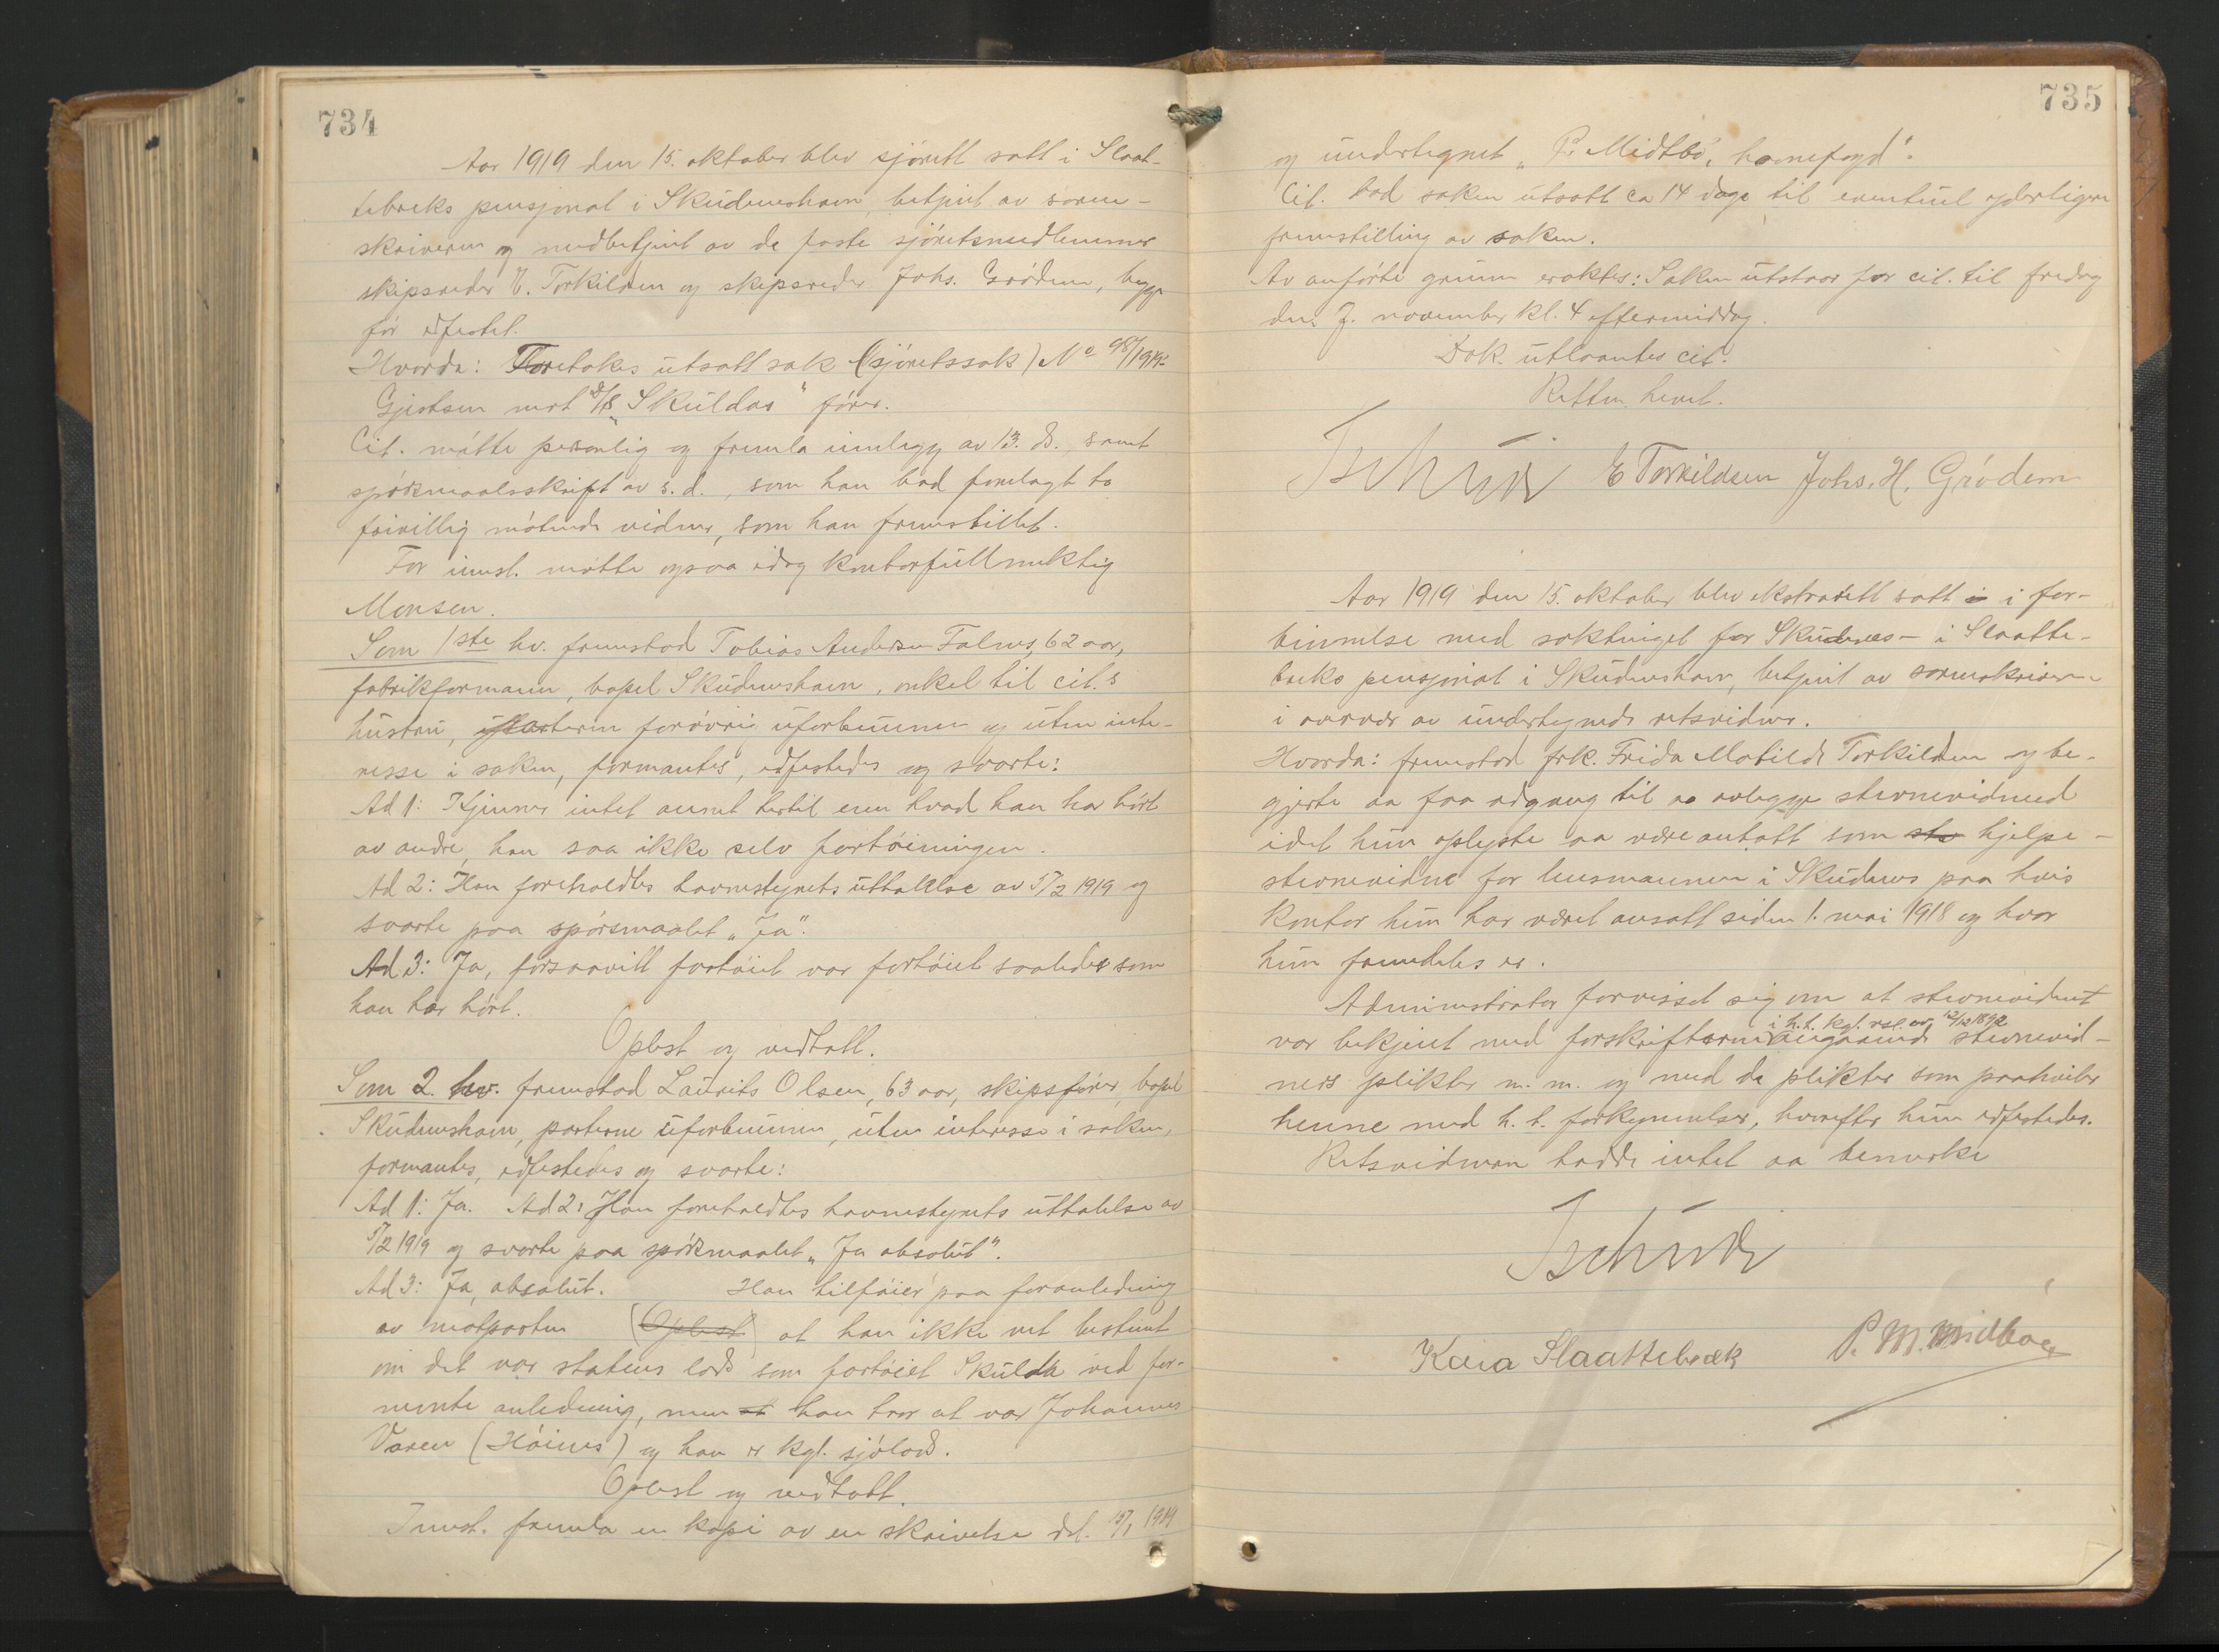 734
Aar 1919 den 15. oktober blev sjörett satt i Slaat-
tebreks pensjonat i Skudeneshavn, betjent av soren-
skriveren og medbetjent av de faste sjöretsmedlemmer
skipsreder E. Torkildsen og skipsreder Johs. Grödem, begge
för edfestet.
Hvorda: Foretokes utsatt sak (sjöretssak) No 98/1919:
Gjertsen mot D/S "Skuldas" förer.
Cit. mötte personlig og fremla innlegg av 13. ds., samt
spörsmaalsskrift av s. d., som han bad forelagt to
frivillig mötende vidner, som han fremstillet.
For innst. mötte ogsaa idag kontorfullmektig
Monsen.
Som 1ste hv. fremstod Tobias Andersen Falnes, 62 aar,
fabrikformann, bopel Skudeneshavn, onkel til cit.s
hustru, parterne forövrig uforbunnen og uten inte-
resse i saken, formantes, edfestedes og svarte:
Ad 1: Kjenner intet annet hertil enn hvad han har hört
av andre, han saa ikke selv fortöiningen.
Ad 2: Han foreholdtes havnestyrets uttalelse av 5/2 1919 og
svarte paa spörsmaalet "Ja".
Ad 3: Ja, forsaavitt fartöiet var fortöiet saaledes som
han har hört.
Oplest og vedtatt.
Som 2. hv. fremstod Laurits Olsen, 63 aar, skipsförer, bopel
Skudeneshavn, parterne uforbunnen, uten interesse i saken,
formantes, edfestedes og svarte:
Ad 1: Ja. Ad 2: Han foreholdtes havnestyrets uttalelse av
5/2 1919 og svarte paa spörsmaalet "Ja absolut".
Ad 3: Ja, absolut. Han tilföier paa foranledning
av motparten (Oplest) at han ikke vet bestemt
om det var statens lods som fortöiet Skulda ved for-
nevnte anledning, men at han tror at var Johannes
Varen (Höines) og han er kgl. sjölods.
Oplest og vedtatt.
Innst. fremla en kopi av en skrivelse dat. 15/1 1919
735
og undertegnet "P. Midtbö, havnefogd".
Cit. bad saken utsatt ca 14 dage til eventuel yderligere
fremstilling av saken.
Av anförte grunn eraktes: Saken utstaar for cit. til fredag
den 7. november kl. 4 eftermiddag.
Dok. utlaantes cit.
Retten hevet.
Tschudi E Torkildsen Johs. H. Grödem
Aar 1919 den 15. oktober blev ekstrarett satt i i for-
binnelse med saktinget for Skudenes - i Slaatte-
breks pensjonat i Skudeneshavn, betjent av sorenskriveren
i overvær av undertegnede retsvidner.
Hvorda: fremstod frk. Frida Matilde Torkildsen og be-
gjerte aa faa adgang til aa avlegge stevnevidneed
idet hun oplyste aa være antatt som ste hjelpe-
stevnevidne for lensmannen i Skudenes paa hvis
kontor hun har været ansatt siden 1. mai 1918 og hvor
hun fremdeles er.
Administrator forvisset sig om at stevnevidnet
i h.t. kgl. res. av 12/12 1892
var bekjent med forskrifterne angaaende stevnevid-
ners plikter m. m. og med de plikter som paahviler
henne med h. t. forkynnelser, hvorefter hun edfestedes.
Retsvidnerne hadde intet aa bemerke
Tschudi
Kaia Slaattebræk P. M. Midbøe